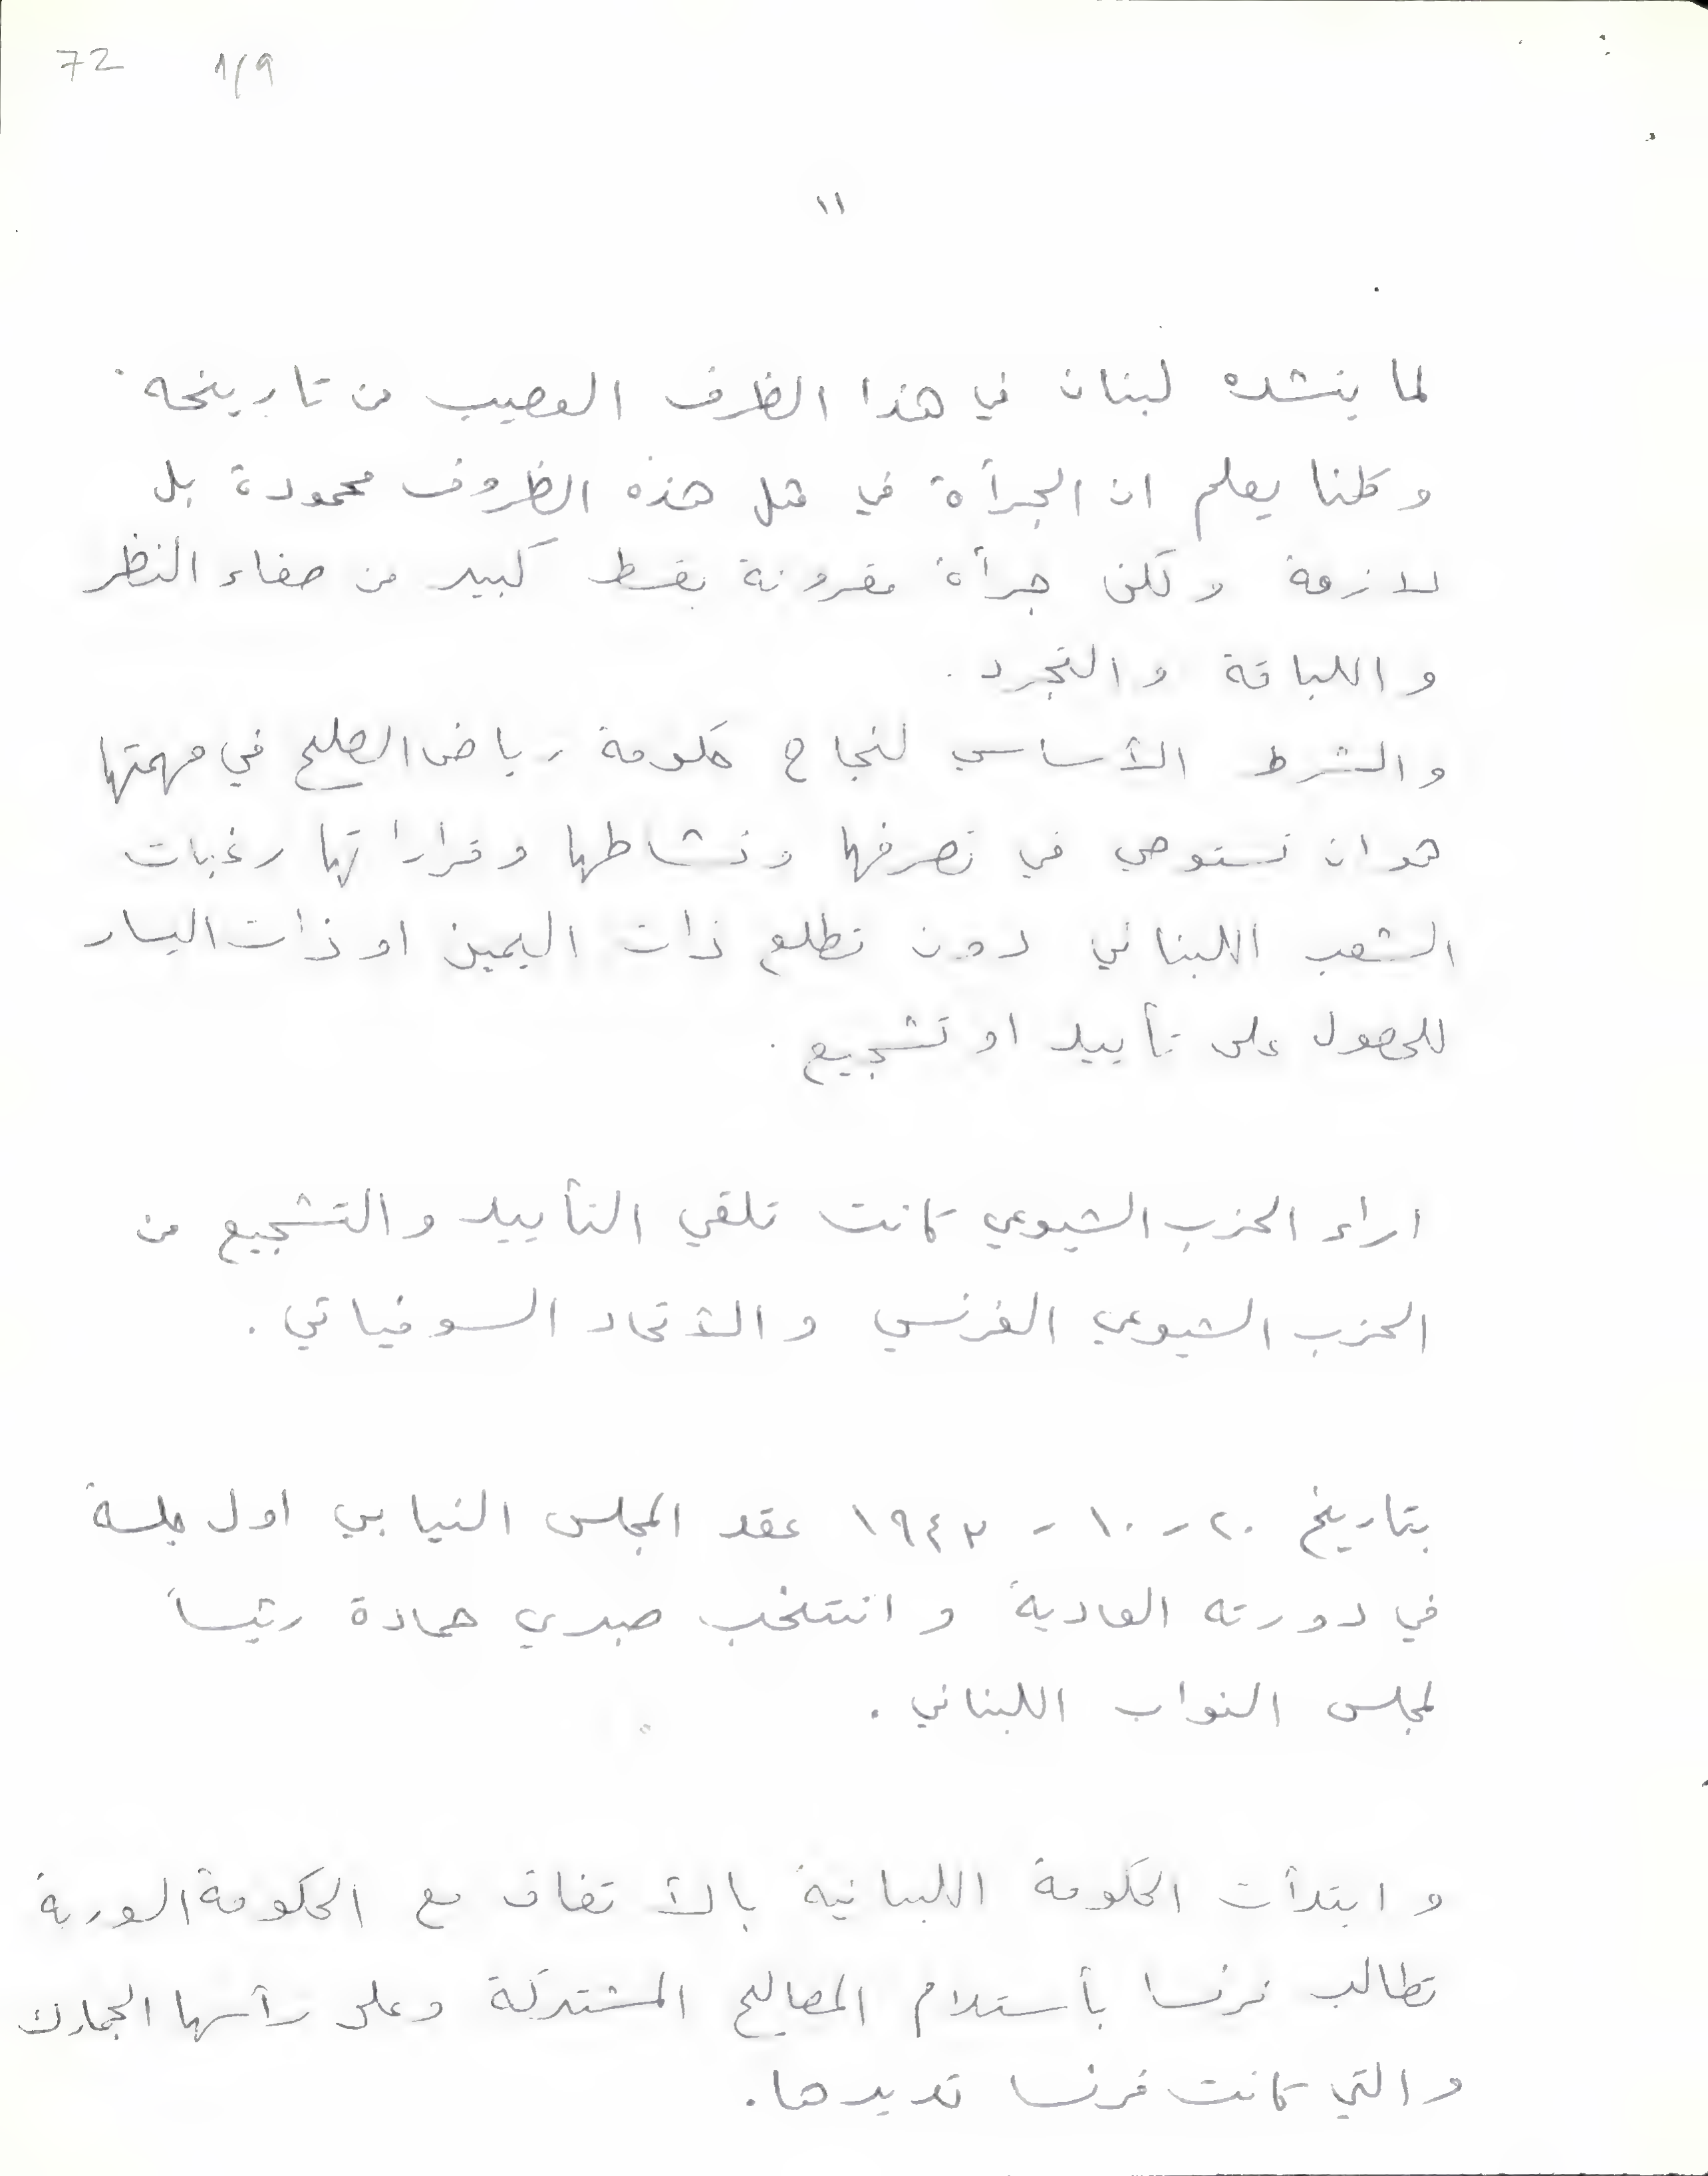 72 1/9
١١
لما ينشده لبنان في هذا الظرف العصيب من تاريخه.
وكلنا يعلم ان الجرأة في مثل هذه الظروف محمودة بل
لازمة ولكن جرأة مقرونة بقسط كبير من صفاء النظر
واللباقة والتجرد.
والشرط الأساسي لنجاح حكومة رياض الصلح في مهمتها
هو ان تستوحي في تصرفها ونشاطها وقراراتها رغبات
الشعب اللبناني دون تطلع ذات اليمين او ذات اليسار
للحصول على تأييد او تشجيع.
اراء الحزب الشيوعي كانت تلقي التأييد والتشجيع من
الحزب الشيوعي الفرنسي والأتحاد السوفياتي.
بتاريخ ٢٠-١٠-١٩٤٣ عقد المجلس النيابي اول جلسة
في دورته العادية وانتخب صبري حمادة رئيساً
لمجلس النواب اللبناني.
وابتدأت الحكومة اللبنانية بالأتفاق مع الحكومة السورية
تطالب فرنسا بأستلام المصاليح المشتركة وعلى رأسها الجمارك
والتي كانت فرنسا تديرها.